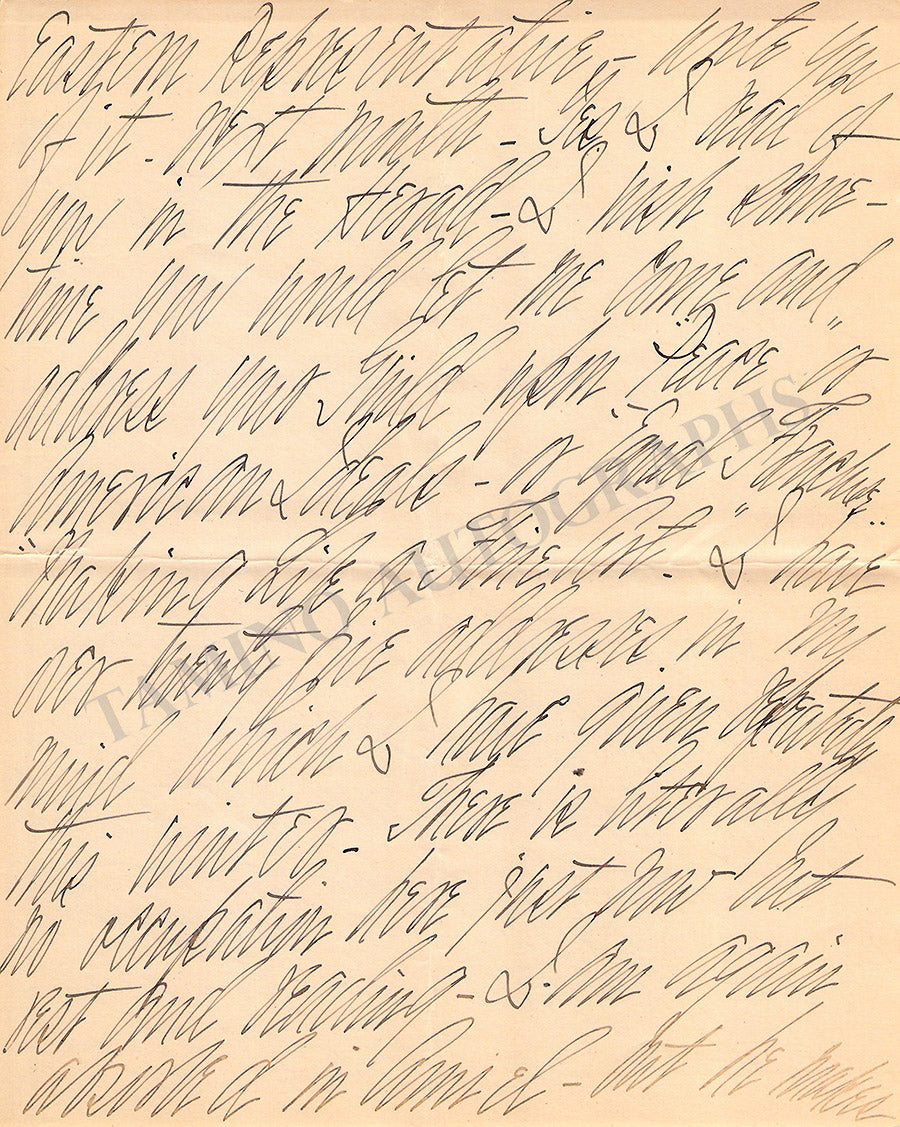 Eastern Representative, to write you
of it. next month - Yes I read of
you in the Herald - I wish some-
time you would let me come and
address your Guild upon "Peace" or
American Ideals - or
"Making Life Worth." I have
over twenty five addresses in my
mind which I have given repeatedly
this winter - There is literally
no occupation here just now but
rest and reading - I am again
absorbed in Amiel - but he makes
TAMINO AUTOGRAPHS